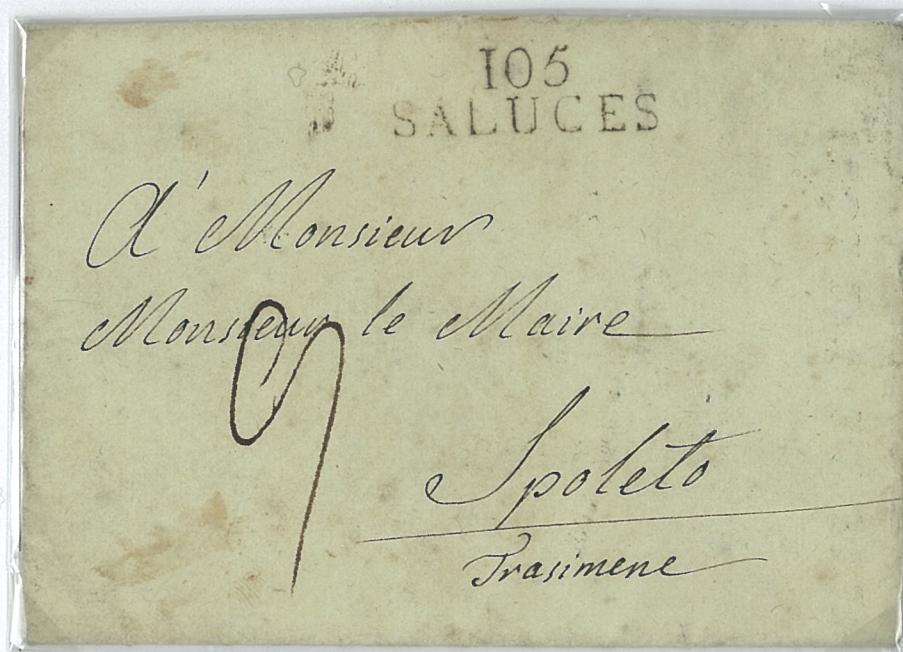 105
SALUCES
A' Monsieur
Monsieur le Maire
9
Spoleto
Trasimene